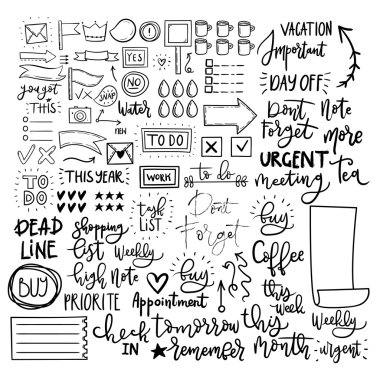 VACATION
Important
YES
you got
THIS
SNAP
NO
Water
DAY OFF
NEW
TO DO
Don't
Forget
Note
more
URGENT
TO
DO
THIS YEAR
WORK
to do
meeting
Tea
DEAD
LINE
shopping
list
task
LIST
Don't
Forget
buy
Weekly
high Note
buy
Coffee
BUY
PRIORITE
Appointment
this
week
Weekly
check
IN
tomorrow
remember
this
month
urgent